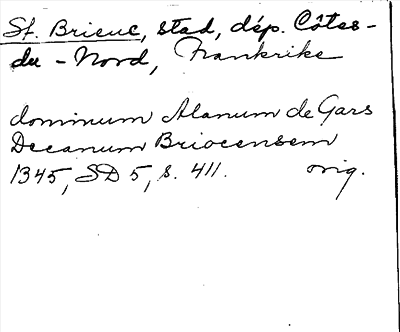 St. Brieuc, stad, dép. Côtes-
du-Nord, Frankrike
dominum Alanum de Gars
Decanum Briocensem
1345, SD 5, s. 411. orig.